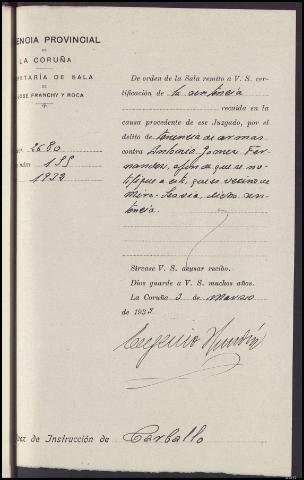 ENCIA PROVINCIAL
DE
LA CORUÑA
RETARÍA DE SALA
DE
JOSÉ FRANCHY Y ROCA
2680
199
1932
De orden de la Sala remito a V. S. cer-
tificación de la sentencia
recaída en la
causa procedente de ese Juzgado, por el
delito de tenencia de armas
contra Antonio Gomez Fer-
nandez, a fin de que se no-
tifique a este, que es vecino de
dicha sen-
tencia.
Sírvase V. S. acusar recibo.
Dios guarde a V. S. muchos años.
La Coruña 3 de Marzo
de 193
Eugenio
ez de Instrucción de Carballo